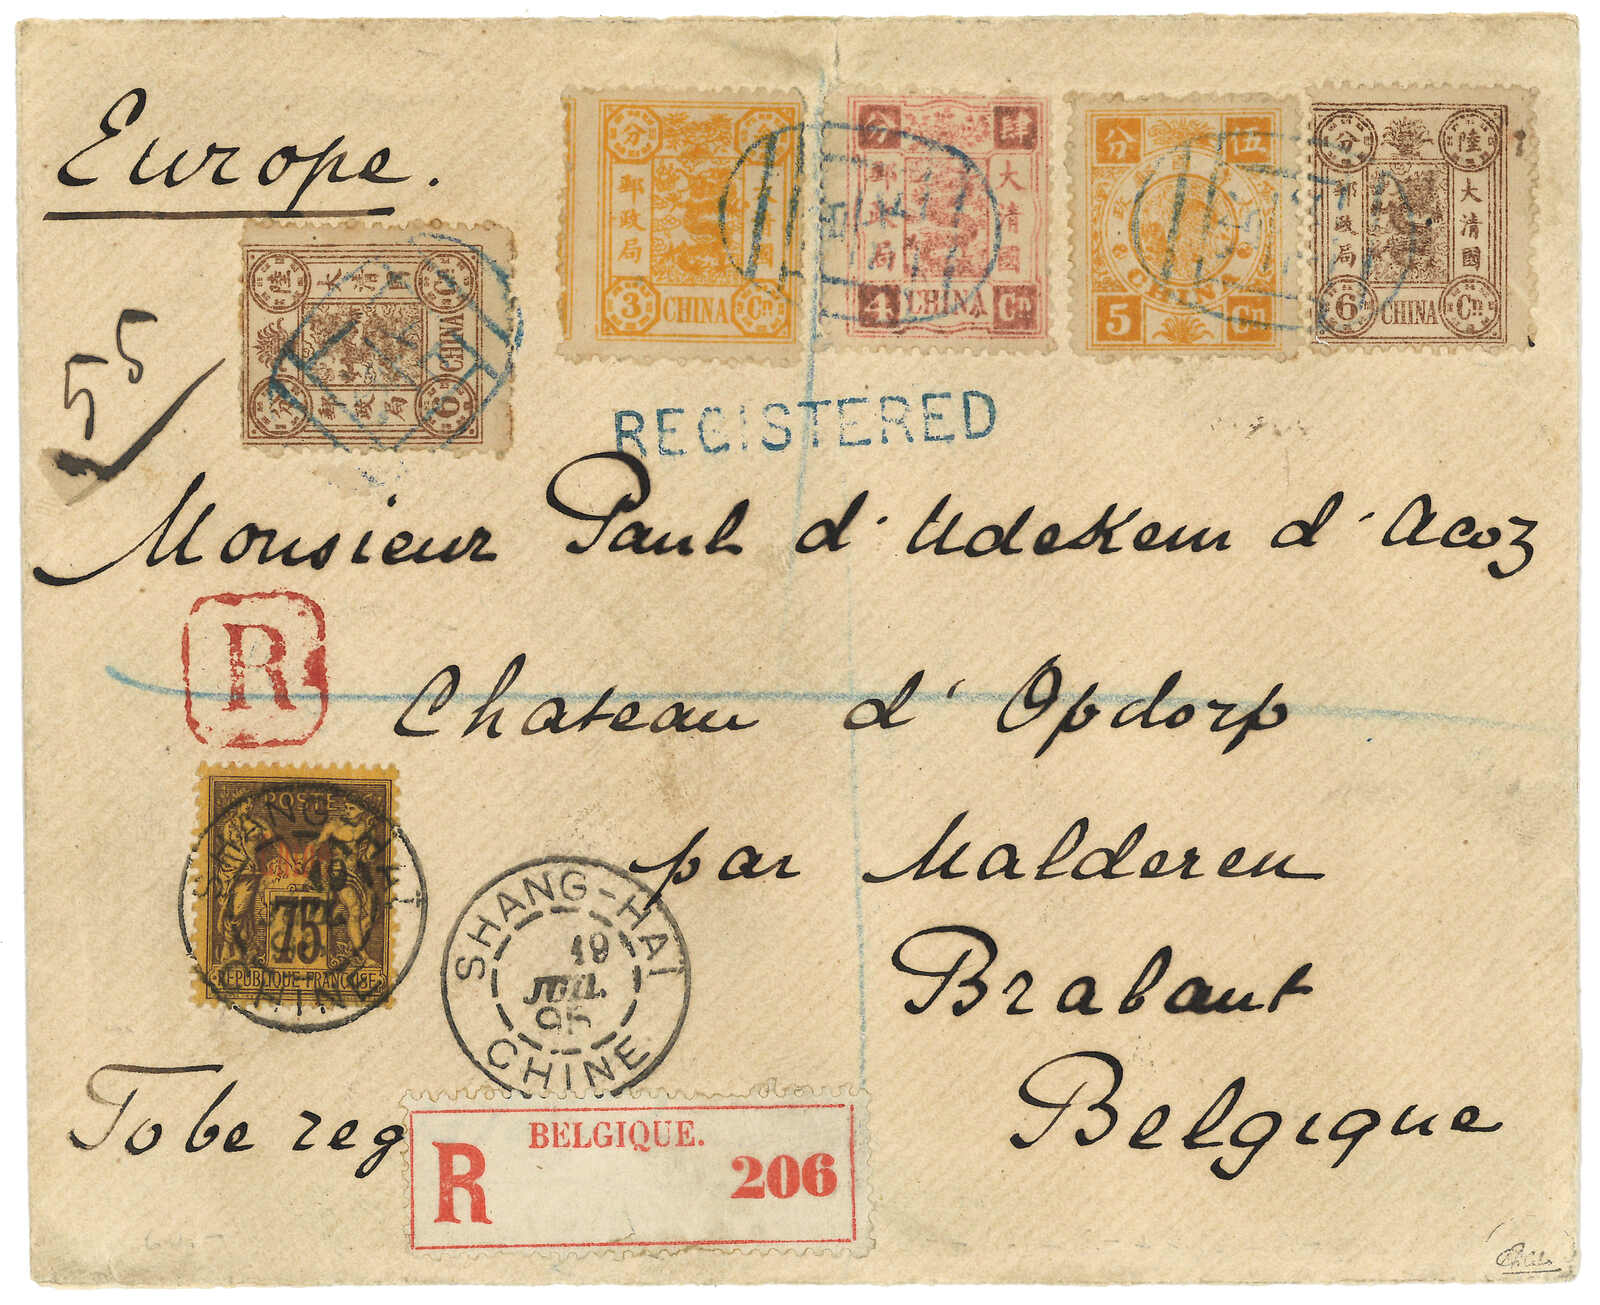 Europe.
55
分
郵政局 大清國
3 CHINA Cn
分 肆
郵政局 大清國
4 CHINA Cn
分 伍
政
CHINA
5 Cn
分 陸
郵政局 大清國
6 CHINA Cn
陸 大清國 Cn
CHINA
分 郵政局 6
REGISTERED
Monsieur Paul d'Udekem d'Acoz
R
Chateau d'Opdorp
par Malderen
Brabant
Belgique
POSTE
75
REPUBLIQUE FRANÇAISE
SHANG-HAI
CHINE
SHANG-HAI
19
JUIL.
95
CHINE
To be reg
BELGIQUE.
R 206